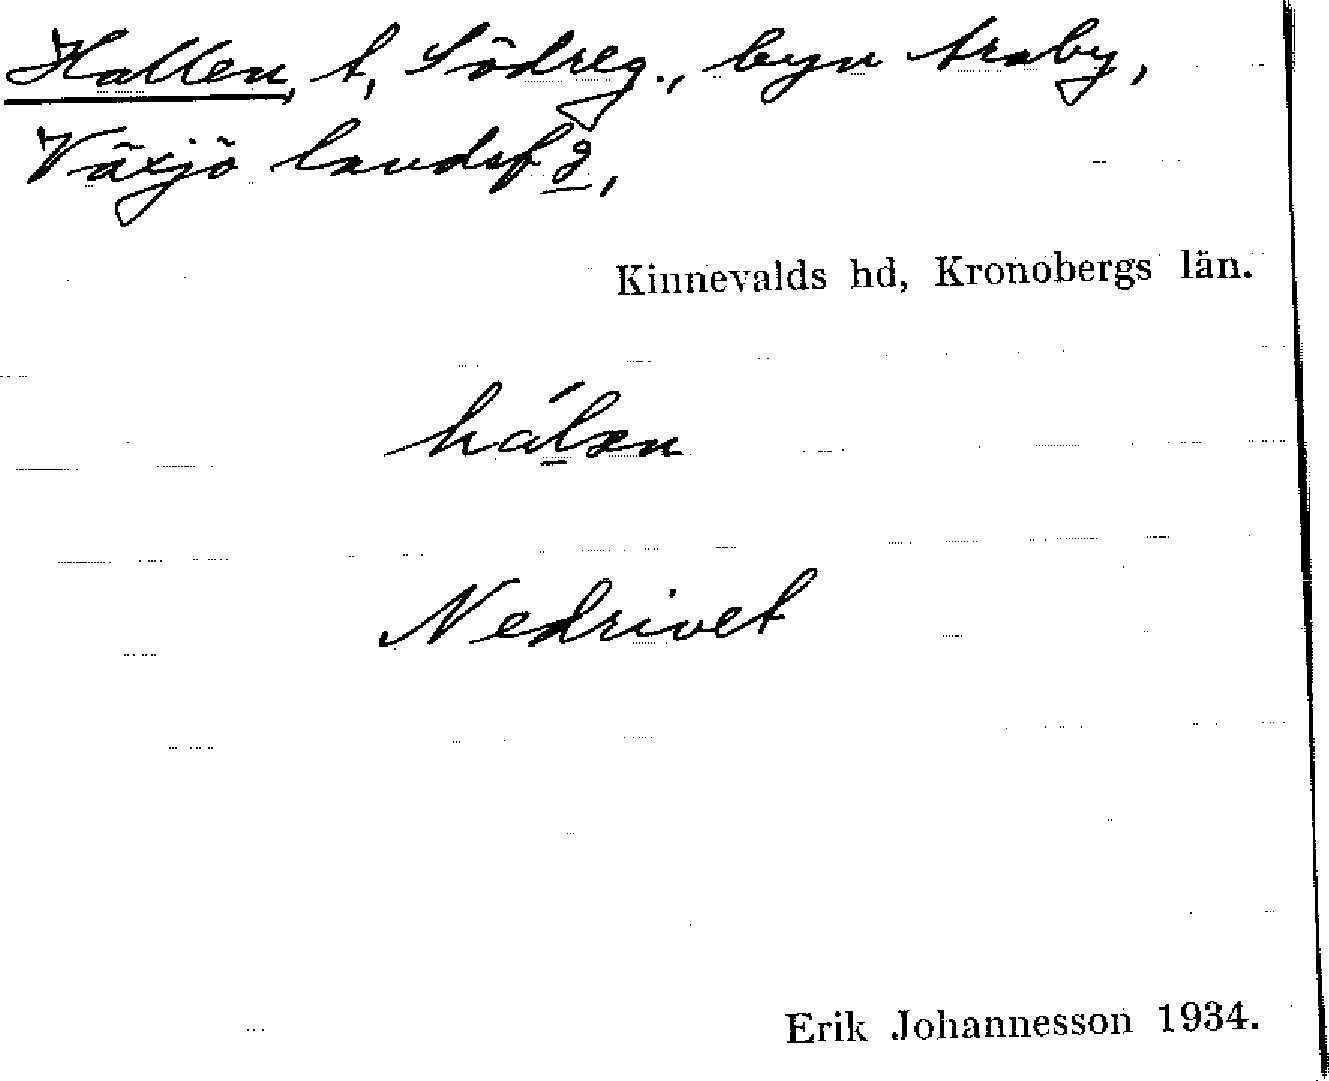 Hallen, t, Södreg., byn Araby,
Växjö landsfg,
Kinnevalds hd, Kronobergs län.
hálæn
Nedrivet
Erik Johannesson 1934.